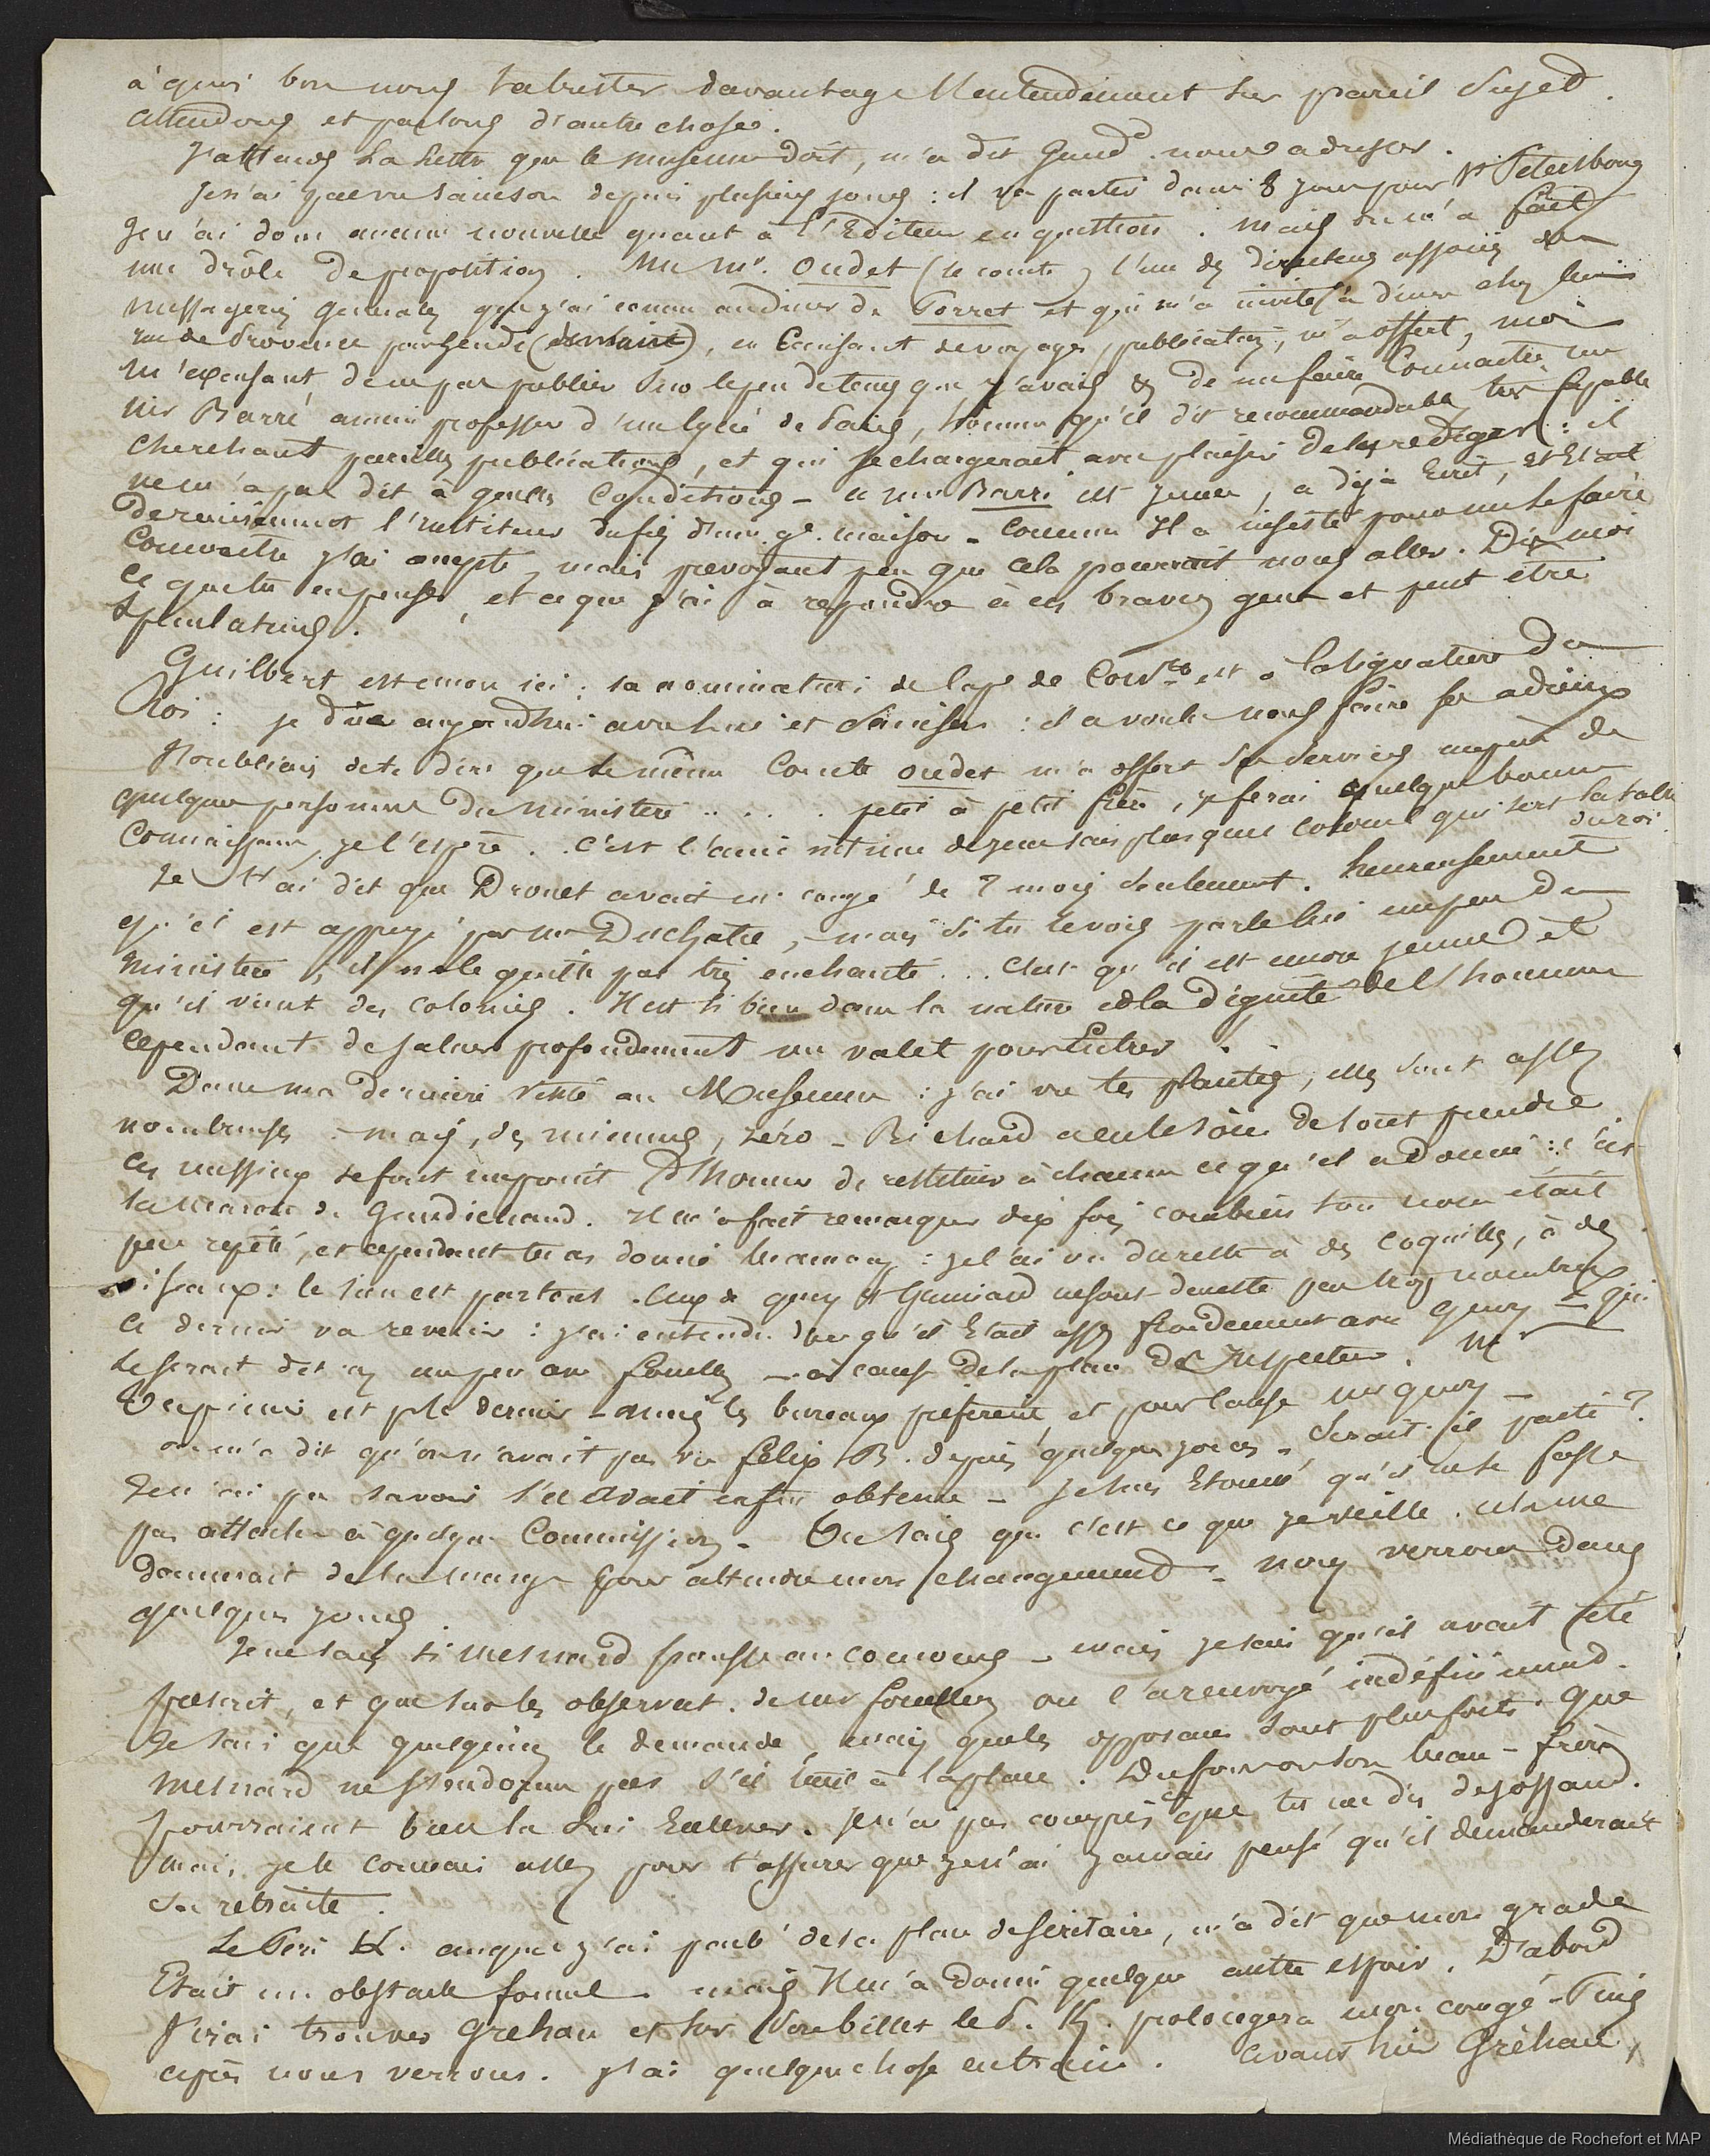 à quoi bon nous tabuster davantage l'entendement sur pareil sujet.
attendons et parlons d'autre chose.
J'attends la lettre que le museum doit, m'a dit Gaud. nous adresser.
Je n'ai pas vu Sainson depuis plusieurs jours : il va partir dans 8 jours pour St Petersbourg
Je n'ai donc aucune nouvelle quant à l'Editeur en question. mais on m'a fait
une drôle de proposition. Un Mr. Oudet (le comte) l'un des directeurs associés des
messageries generales que j'ai connu au diner de Torret et qui m'a invité à diner chez lui
rue de Provence, en causant de voyages, publications, m'a offert, moi
m'excusant de ne pas publier sur le peu de tems que j'avais & de me faire connaitre un
Mr Barré ancien professeur d'un lycée de Paris, homme qu'il dit recommandable, tres capable
cherchant pareilles publications, et qui se chargerait avec plaisir de les rediger : il
ne m'a pas dit à quelles conditions - ce mr Barré est jeune, a déjà écrit, et était
dernièrement l'instituteur du fils d'une gde maison - comme il a insisté pour me le faire
connaitre j'ai accepté, mais prevoyant peu que cela pourrait nous aller. Dis moi
ce que tu en penses, et ce que j'ai à repondre à ces braves gens et peut être
speculateurs.
Guilbert est encore ici : sa nomination de cap. de Corv.te est à la signature du
Roi : je dine aujourd'hui avec lui et Sainson : il a voulu nous faire ses adieux
J'oubliais de te dire que le même Comte Oudet m'a offert ses services auprès de
quelques personnes du ministère .... petit à petit frère, je ferai quelque bonne
connaissance, je l'espère. c'est l'ami intime de je ne sais plus quel colonel qui sert la table
du roi.
Je t'ai dit que Drouet avait un congé de 2 mois seulement. heureusement
qu'il est appuyé par mr Duchatel, mais si tu le vois parle lui un peu du
ministère, il ne le quitte pas très enchanté... C'est qu'il est encore jeune et
qu'il vient des colonies. Il est si bien dans la nature et la dignité de l'homme
cependant de saluer profondement un valet pour entrer
Dans ma dernière visite au Museum : j'ai vu tes plantes, elles sont assez
nombreuses - mais, des miennes, zéro - Richard a eu le soin de tout prendre.
Ces messieurs se font un point d'honneur de restituer à chacun ce qu'il a donné : c'est
la maxime de Gaudichaud. Il m'a fait remarquer dix fois combien ton nom était
peu repété, et cependant tu as donné beaucoup : je l'ai vu du reste à des coquilles, à des
oiseaux : le sien est partout. Ceux de Quoy et Gaimard ne sont du reste pas trop nombreux
ce dernier va revenir : j'ai entendu dire qu'il était assez froidement avec Quoy - qui
le serait dit-on un peu avec Foullioy - à cause de la place d'Inspecteur. Mr
est pr ce dernier - mais les bureaux préfèrent et pour cause Mr Quoy -
on m'a dit qu'on n'avait pas vu Felix B. depuis quelques jours - Serait-il parti ?
Je n'ai pu savoir s'il avait enfin obtenu - je suis étonné qu'il ne se fasse
pas attacher à quelque Commission. Tu sais que c'est ce que je veille. cela me
donnerait de la marge pour attendre mon changement - nous verrons dans
quelques jours.
Je ne sais si Mesnard pousse au concours - mais je sais qu'il avait été
prescrit, et que sur les observat. de mr Foullioy on l'a renvoyé indéfiniment.
Je sais que quelqu'un le demande, mais que les opposans sont plus forts. Que
Mesnard ne s'endorme pas s'il tient à la place. Dufour ou son beau-frère
pourraient bien la lui enlever. Je n'ai pas compris ce que tu me dis de Joffaud.
mais je le connais assez pour t'assurer que je n'ai jamais pensé qu'il demanderait
sa retraite.
Le Père K. auquel j'ai parlé de sa place de secrétaire, m'a dit que mon grade
était un obstacle formel. mais Il m'a donné quelque autre espoir. D'abord
J'irai trouver Gréhan et sur son billet le P. K. prolongera mon congé - Puis
après nous verrons. J'ai quelque chose en train. avant hier Gréhan,
Médiathèque de Rochefort et MAP